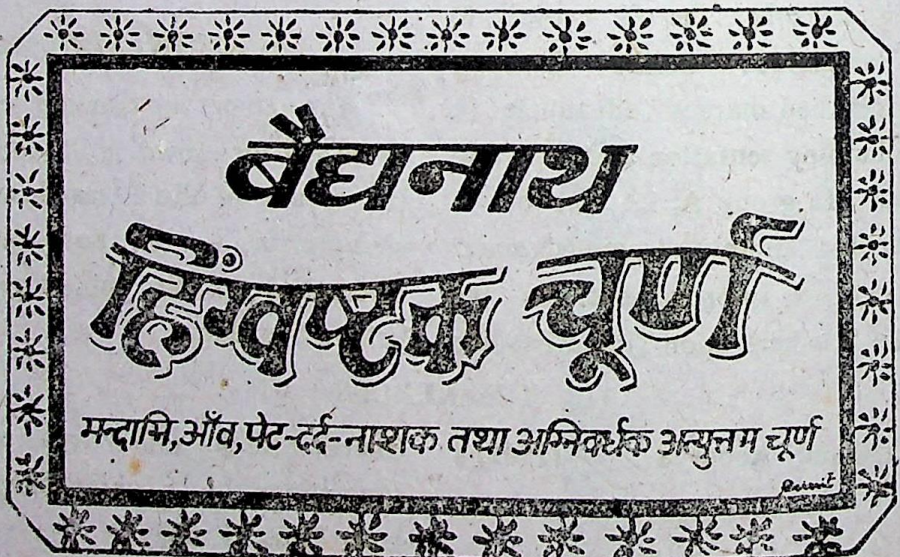 बैद्यनाथ
हिंग्वष्टक चूर्ण
मन्दाग्नि,आँव,पेट-दर्द-नाशक तथा अग्निवर्धक अत्युत्तम चूर्ण